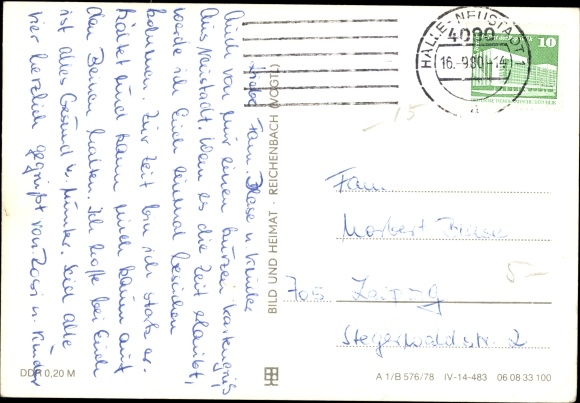 Liebe Fam. Blase u. Kinder
Auch von mir einen kurzen Kartengruß
aus Neustadt. Wenn es die Zeit erlaubt,
werde ich Euch einmal besuchen
kommen. Zur Zeit bin ich stark er-
kältet und kann mich kaum auf
den Beinen halten. Ich hoffe bei Euch
ist alles Gesund u. Munter. Seid alle
hier herzlich gegrüßt von u. Kinder
BILD UND HEIMAT · REICHENBACH (VOGTL)
DDR 0,20 M
HALLE-NEUSTADT 1
4090
16.-9.80-14
a
10
DEUTSCHE DEMOKRATISCHE REPUBLIK
15
Fam.
Norbert Blase
5-
705 Leipzig
Stegerwaldstr. 2
A 1/B 576/78 IV-14-483 06 08 33 100